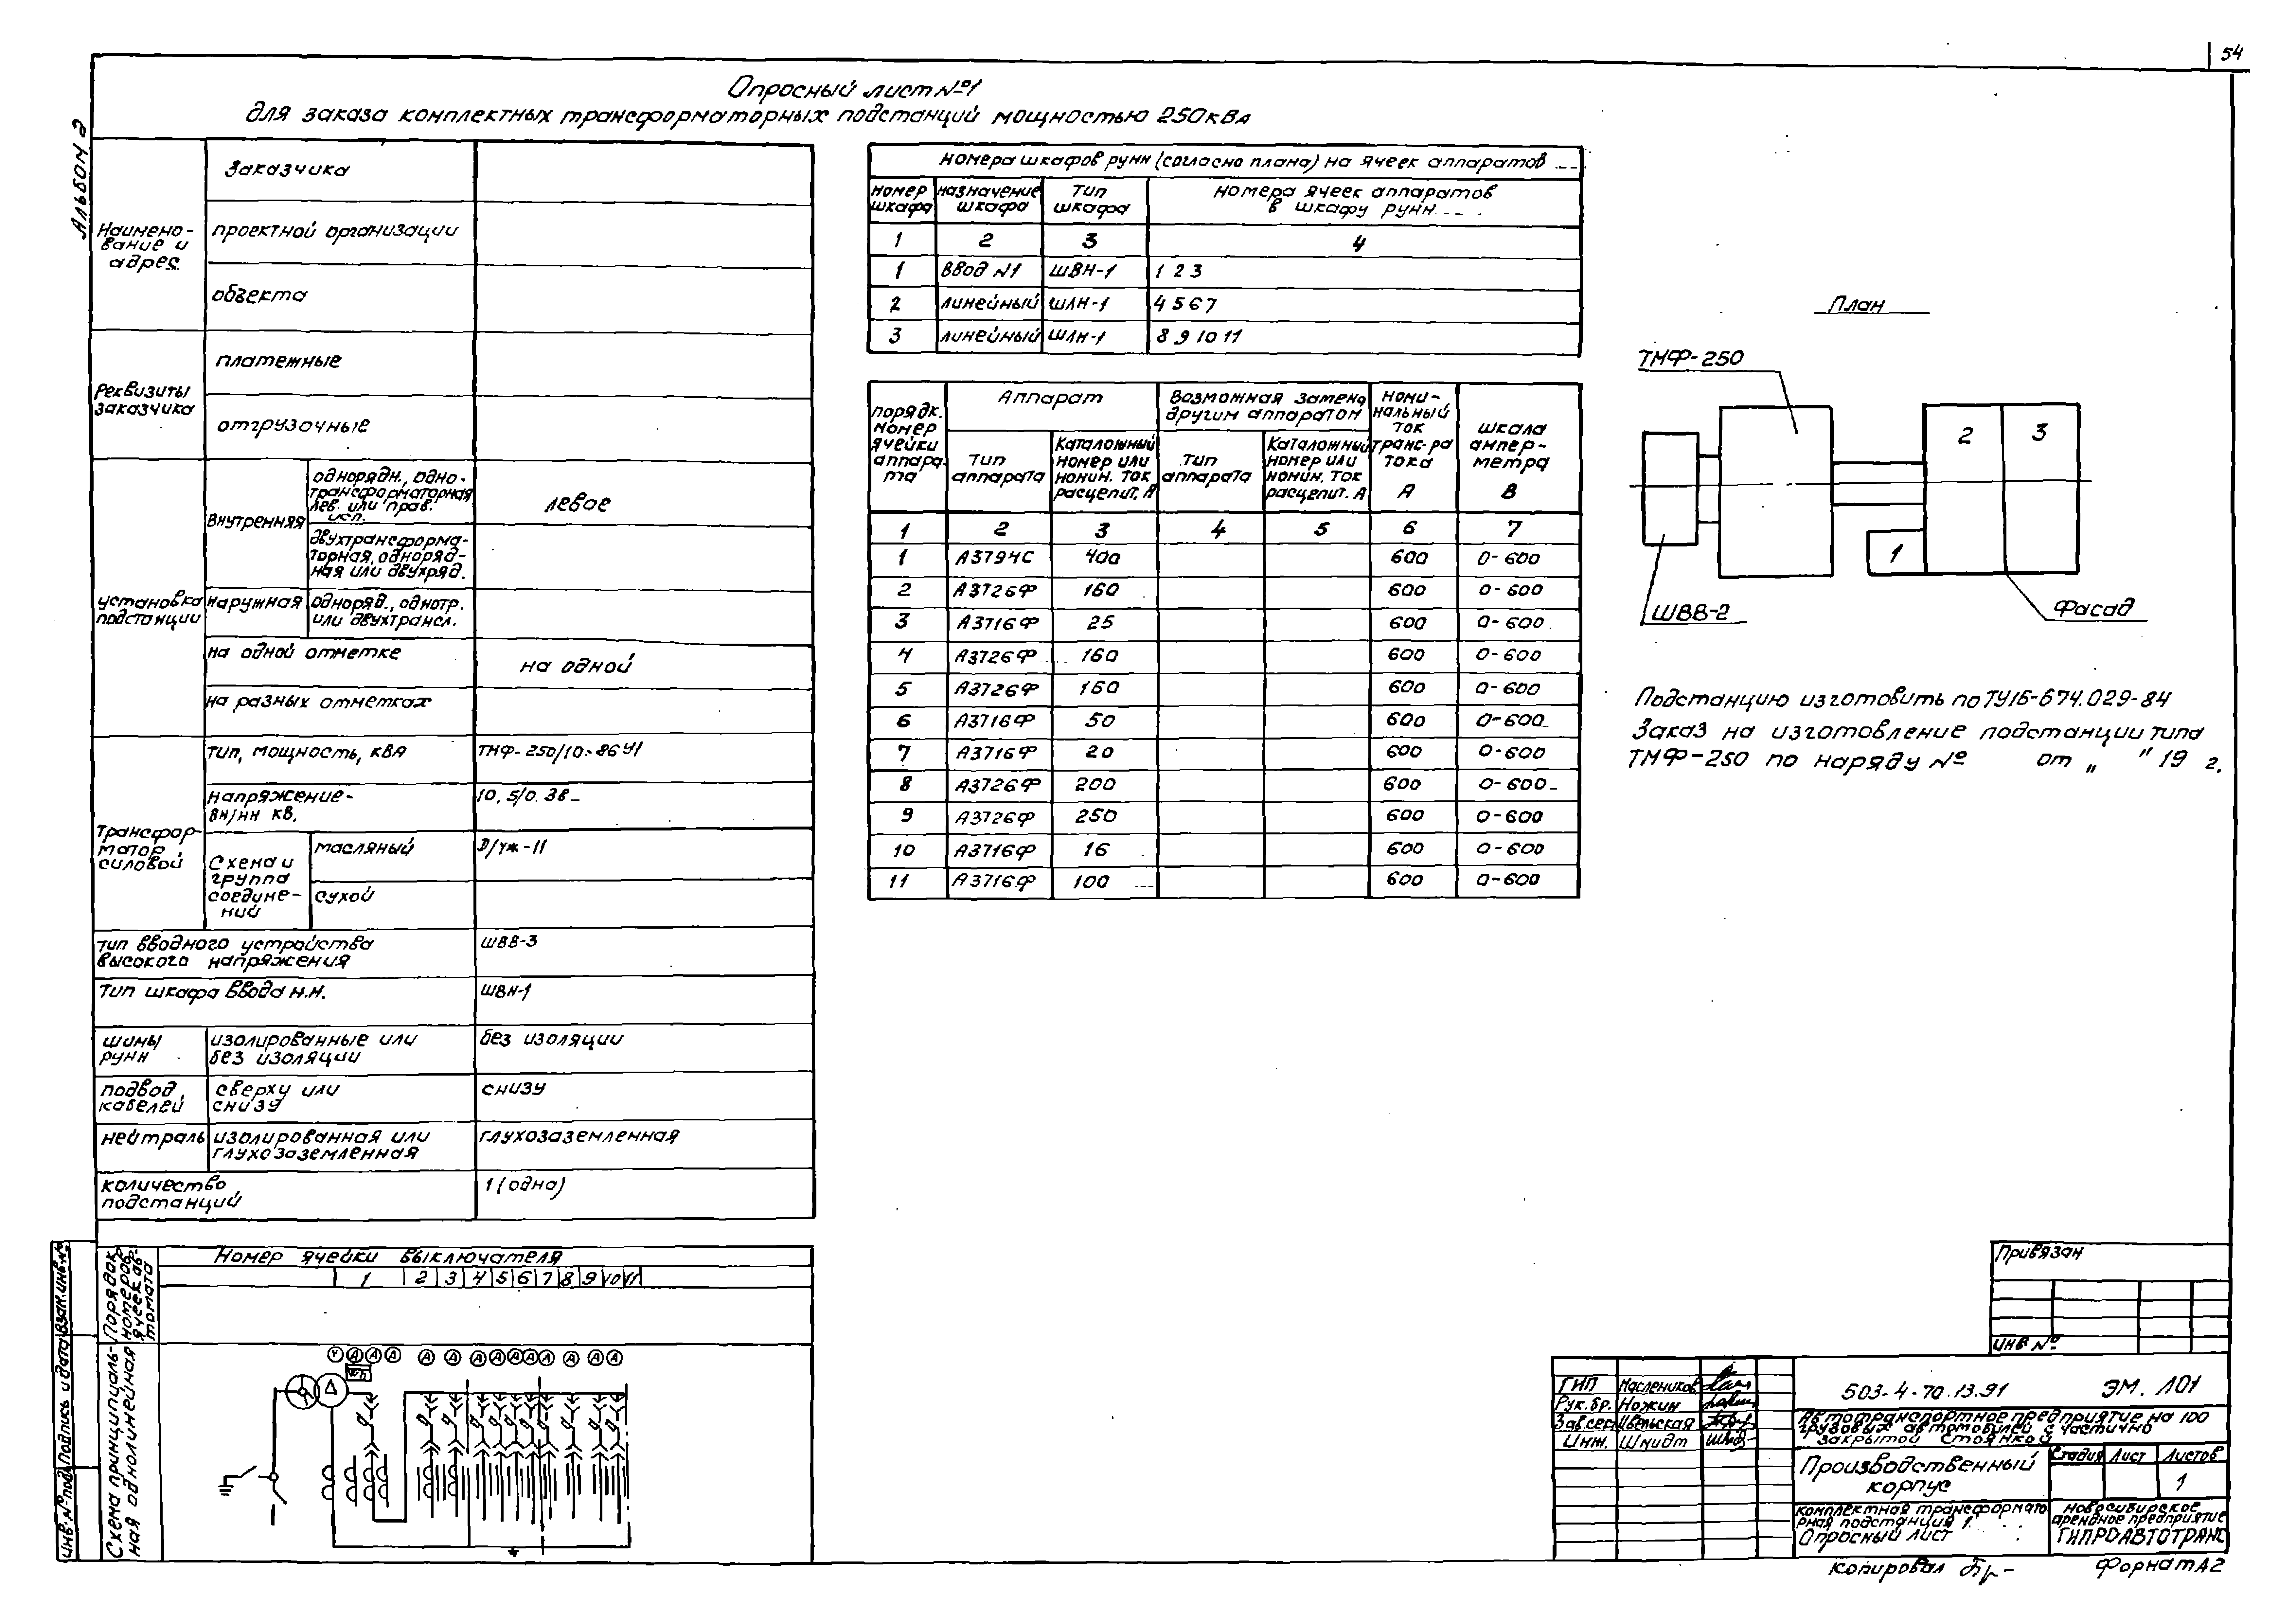 54
Альбом 2
Опросный лист №1
для заказа комплектных трансформаторных подстанций мощностью 250кВА
Наимено-
вание и
адрес
Заказчика
проектной организации
объекта
Реквизиты
заказчика
платежные
отгрузочные
установка
подстанции
Внутренняя
однорядн., одно-
трансформаторная
лев. или прав.
исп.
левое
двухтрансформа-
торная, одноряд-
ная или двухряд.
наружная
одноряд., однотр.
или двухтрансл.
на одной отметке
на одной
на разных отметках
Трансфор-
матор
силовой
тип, мощность, кВА
ТМФ-250/10-86У1
напряжение-
вн/нн кв.
10,5/0.38
Схема и
группа
соедине-
ний
масляный
D/Ун-11
сухой
тип вводного устройства
высокого напряжения
ШВВ-3
Тип шкафа ввода н.н.
ШВН-1
шины
рунн
изолированные или
без изоляции
без изоляции
подвод
кабелей
сверху или
снизу
снизу
нейтраль
изолированная или
глухозаземленная
глухозаземленная
количество
подстанций
1 (одна)
Номера шкафов рунн (согласно плана) на ячеек аппаратов
номер
шкафа
назначение
шкафа
тип
шкафа
номера ячеек аппаратов
в шкафу рунн
1 2 3 4
1 Ввод N1 ШВН-1 1 2 3
2 линейный ШЛН-1 4 5 6 7
3 линейный ШЛН-1 8 9 10 11
порядк.
номер
ячейки
аппара
та
Аппарат
Тип
аппарата
Каталожный
номер или
номин. ток
расцепит. А
Возможная замена
другим аппаратом
Тип
аппарата
Каталожный
номер или
номин. ток
расцепит. А
номи-
нальный
ток
транс-ра
тока
А
шкала
ампер-
метра
В
1 2 3 4 5 6 7
1 А3794С 400 600 0-600
2 А3726Ф 160 600 0-600
3 А3716Ф 25 600 0-600
4 А3726Ф 160 600 0-600
5 А3726Ф 160 600 0-600
6 А3716Ф 50 600 0-600
7 А3716Ф 20 600 0-600
8 А3726Ф 200 600 0-600
9 А3726Ф 250 600 0-600
10 А3716Ф 16 600 0-600
11 А3716Ф 100 600 0-600
План
ТМФ-250
2 3
1
ШВВ-2
Фасад
Подстанцию изготовить по ТУ16-674.029-84
Заказ на изготовление подстанции типа
ТМФ-250 по наряду № от „ " 19 г.
Порядок
номеров
ячеек ав-
томата
Номер ячейки выключателя
1 2 3 4 5 6 7 8 9 10 11
Схема принципиаль-
ная однолинейная
V A A A A A A A A A A A A A
Δ
Инв. № под.
Подпись и дата
Взам.инв.№
Привязан
инв №
ГИП Маслеников
Рук.бр. Ножин
Зав.сек
Инж. Шмидт
503-4-70.13.91 ЭМ. Л01
Автотранспортное предприятие на 100
грузовых автомобилей с частично
закрытой стоянкой
Производственный
корпус
Стадия Лист Листов
1
комплектная трансформато
рная подстанция 1.
Опросный лист
новосибирское
арендное предприятие
ГИПРОАВТОТРАНС
копировал
Формат А2